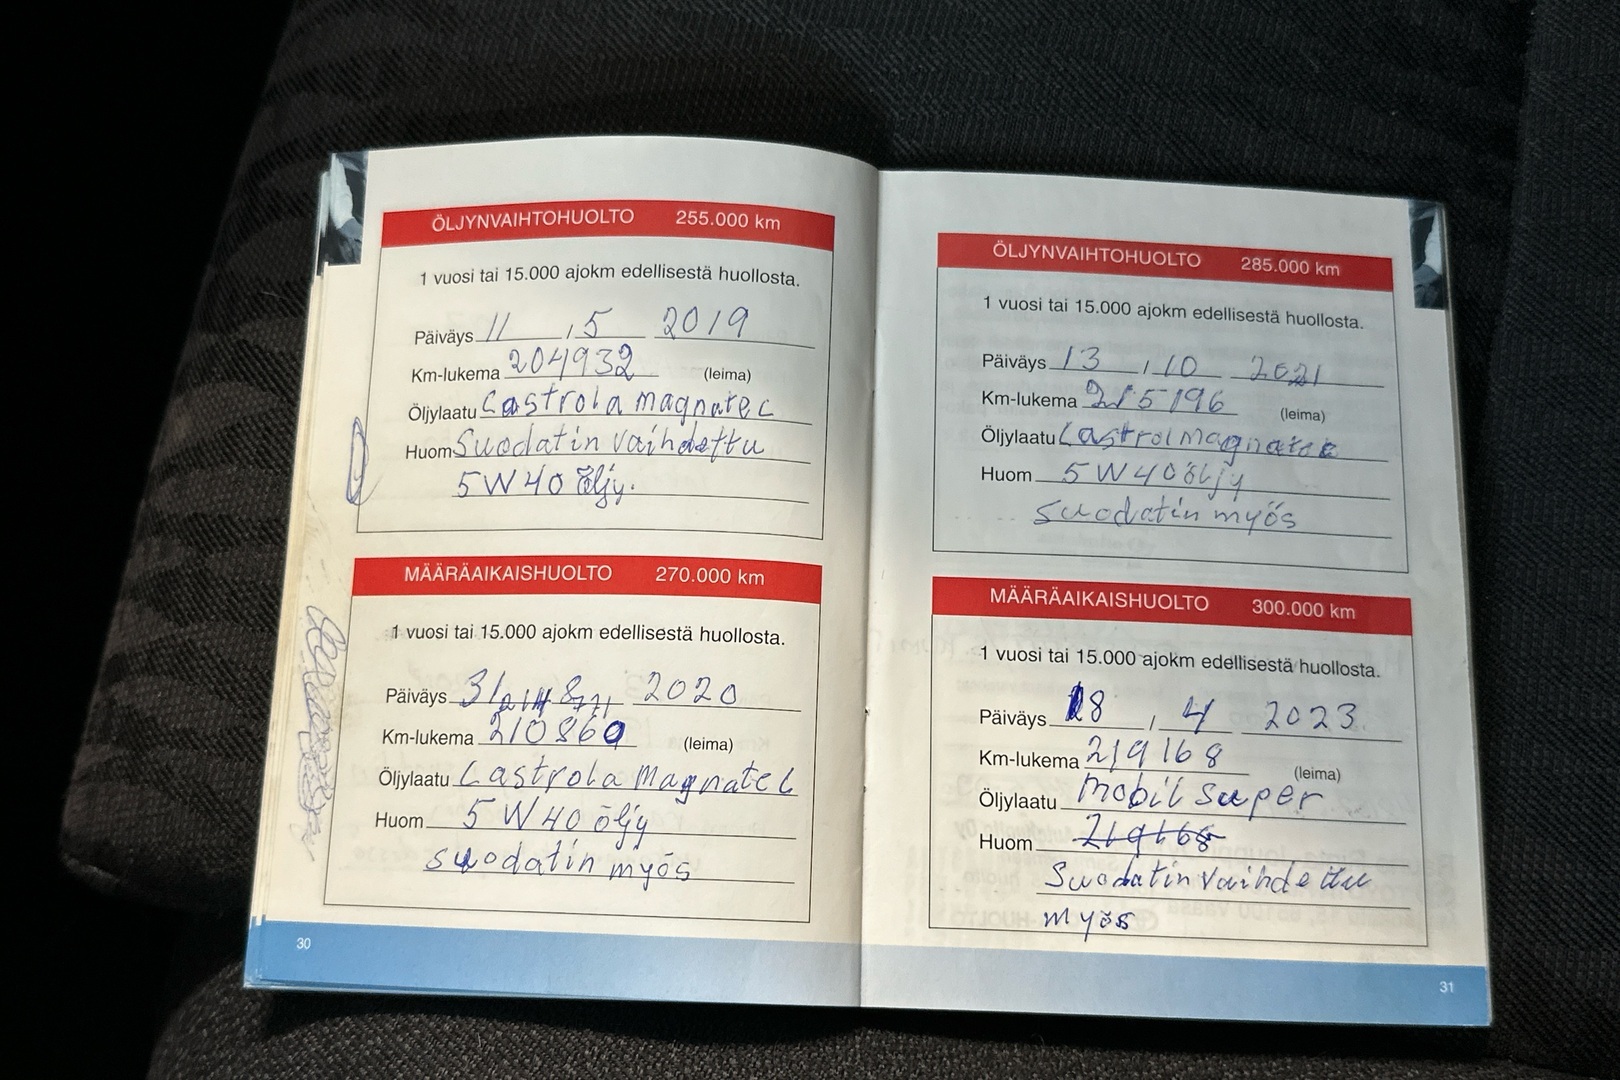 ÖLJYNVAIHTOHUOLTO 255.000 km
1 vuosi tai 15.000 ajokm edellisestä huollosta.
Päiväys 11 , 5 2019
Km-lukema 204932 (leima)
Öljylaatu Castrola magnatec
Huom Suodatin vaihdettu
5W40 öljy.
MÄÄRÄAIKAISHUOLTO 270.000 km
1 vuosi tai 15.000 ajokm edellisestä huollosta.
Päiväys 31 8 2020
Km-lukema 210860 (leima)
Öljylaatu Castrola Magnatec
Huom 5W40 öljy
suodatin myös
30
ÖLJYNVAIHTOHUOLTO 285.000 km
1 vuosi tai 15.000 ajokm edellisestä huollosta.
Päiväys 13 , 10 2021
Km-lukema 215196 (leima)
Öljylaatu Castrol Magnatec
Huom 5W40 öljy
suodatin myös
MÄÄRÄAIKAISHUOLTO 300.000 km
1 vuosi tai 15.000 ajokm edellisestä huollosta.
Päiväys 18 , 4 2023
Km-lukema 219168 (leima)
Öljylaatu mobil super
Huom 219168
Suodatin vaihdettu
myös
31